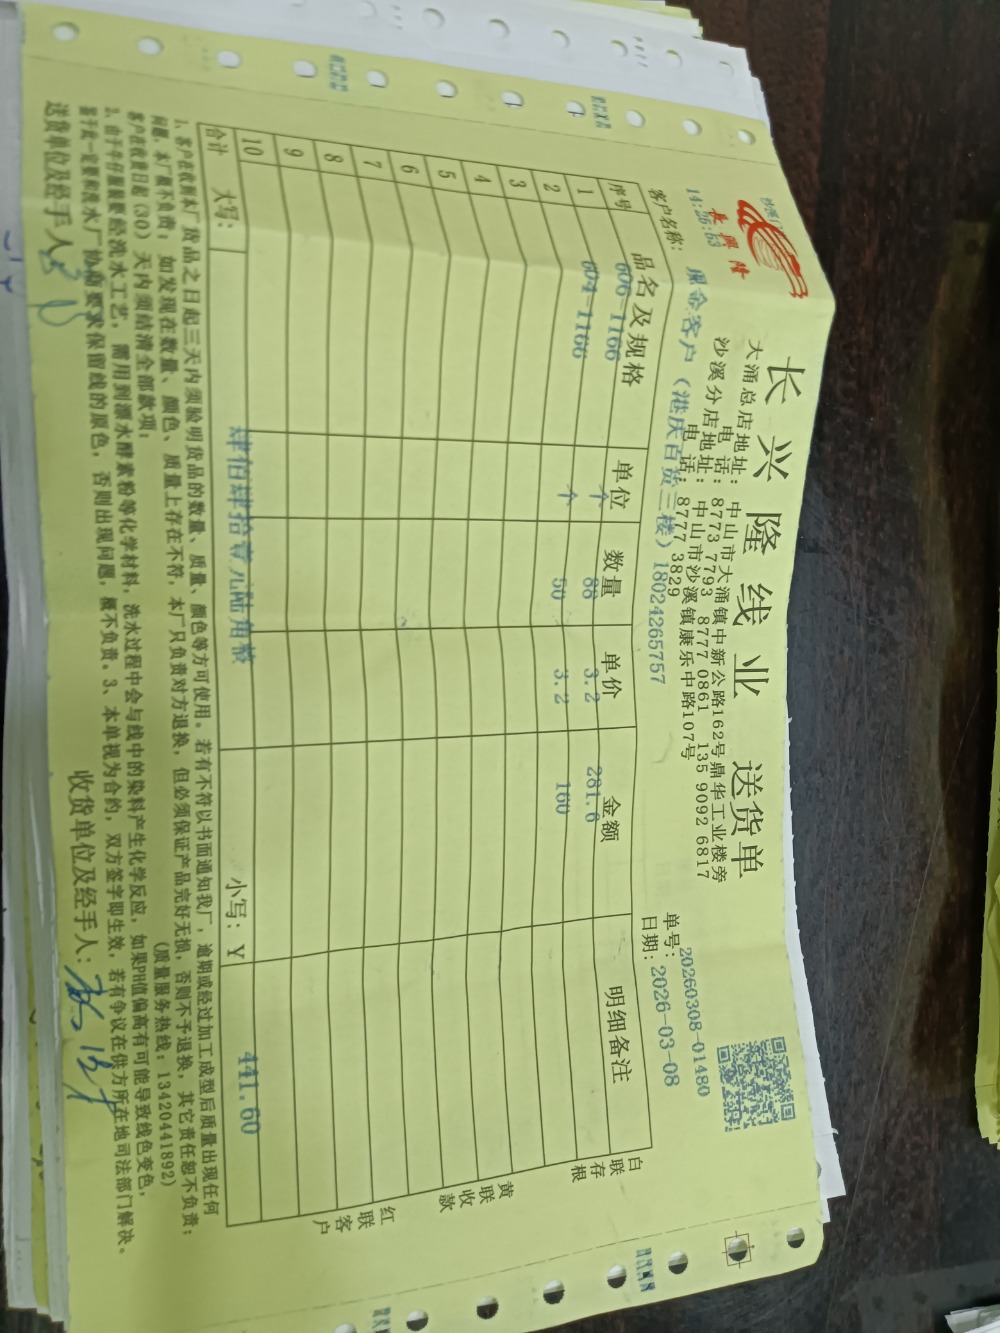 長興隆
14:26:53
长兴隆线业 送货单
大涌总店地址：中山市大涌镇中新公路162号鼎华工业楼旁
电 话：8773 7793 8777 0861 135 9092 6817
沙溪分店地址：中山市沙溪镇康乐中路107号
电 话：8777 3829
单号：20260308-01480
客户名称：现金客户（港庆百货三楼）18024265757
日期：2026-03-08
序号 品名及规格 单位 数量 单价 金额 明细备注
1 606-1166 个 88 3.2 281.6
2 604-1166 个 50 3.2 160
3
4
5
6
7
8
9
10
合计 大写：肆佰肆拾壹元陆角整 小写：Y 441.60
白联存根
黄联收款
红联客户
1、客户在收到本厂货品之日起三天内须验明货品的数量、质量、颜色等方可使用。若有不符以书面通知我厂，逾期或经过加工成型后质量出现任何
问题，本厂概不负责；如发现在数量、颜色、质量上存在不符，本厂只负责对方退换，但必须保证产品完好无损，否则不予退换，其它责任恕不负责；
客户在收货日起（30）天内须结清全部款项； （质量服务热线：13420441892）
2、由于牛仔服装要经洗水工艺，需用到漂水酵素粉等化学材料，洗水过程中会与线中的染料产生化学反应，如果PH值偏高有可能导致线色变色，
鉴于此一定要和洗水厂协商要求保留线的原色，否则出现问题，概不负责。3、本单视为合约，双方签字即生效，若有争议在供方所在地司法部门解决。
送货单位及经手人： 收货单位及经手人：